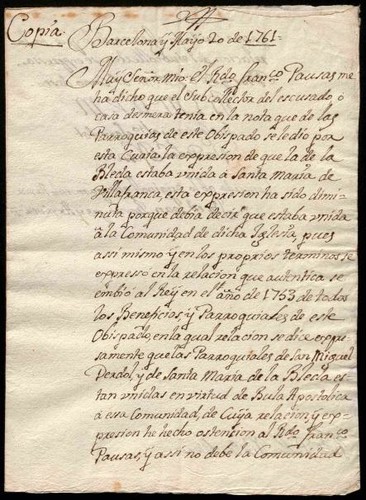 Copia
Barcelona y Mayo 20 de 1761=
Muy Señor Mio: el Rdo. Franco. Pausas me
ha dicho que el Subcollector del escusado, ò
casa desmera tenia en la nota que de las
Parroquias de este Obispado se le diò por
esta Curia la expression de que la de la
Bleda estava vnida à Santa Maria de
Villafranca, esta expression ha sido dimi-
nuta porque debia decir que estaba vnida
à la Comunidad de dicha Iglesia, pues
assi mismo y en los proprios terminos se
expressò en la relacion que autentica se
embiò al Rey en el año de 1753 de todos
los Beneficios, y Parroquiales de este
Obispado, en la qual relacion se dice expre-
samente que las Parroquiales de San Miguel
Derdol y de Santa Maria de la Bleda es-
tan vnidas en virtud de Bula Apostolica
à esa Comunidad, de Cuya relacion, y ex-
pression he hecho ostencion al Rdo. Franco.
Pausas, y assi no debe la Comunidad